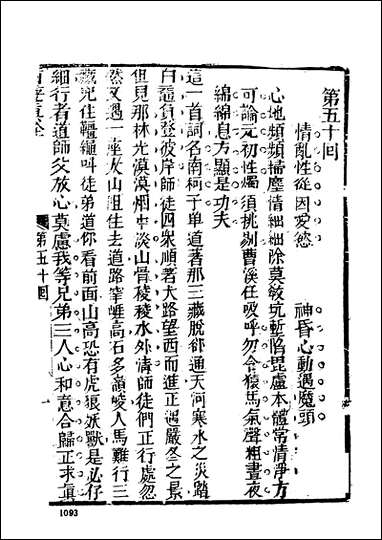 第五十回
情亂性從因愛慾　神昏心動遇魔頭
心地頻頻掃塵情細細除莫敎坑塹陷毘盧本體常清淨方
可論元初性燭須挑剔曹溪任吸呼勿令猿馬氣聲粗晝夜
綿綿息方顯是功夫
這一首詞名南柯子單道著那三藏脫卻通天河寒水之災踏
白黿負登彼岸師徒四衆順著大路望西而進正遇嚴冬之景
但見那林光漠漠烟中淡山骨稜稜水外清師徒們正行處忽
然又遇一座大山阻住去道路窄崖高石多嶺峻人馬難行三
藏兜住韁繩叫徒弟道你看前面山高恐有虎狼妖獸是必仔
細行者道師父放心莫慮我等兄弟三人心和意合歸正求眞
第五十回
1093